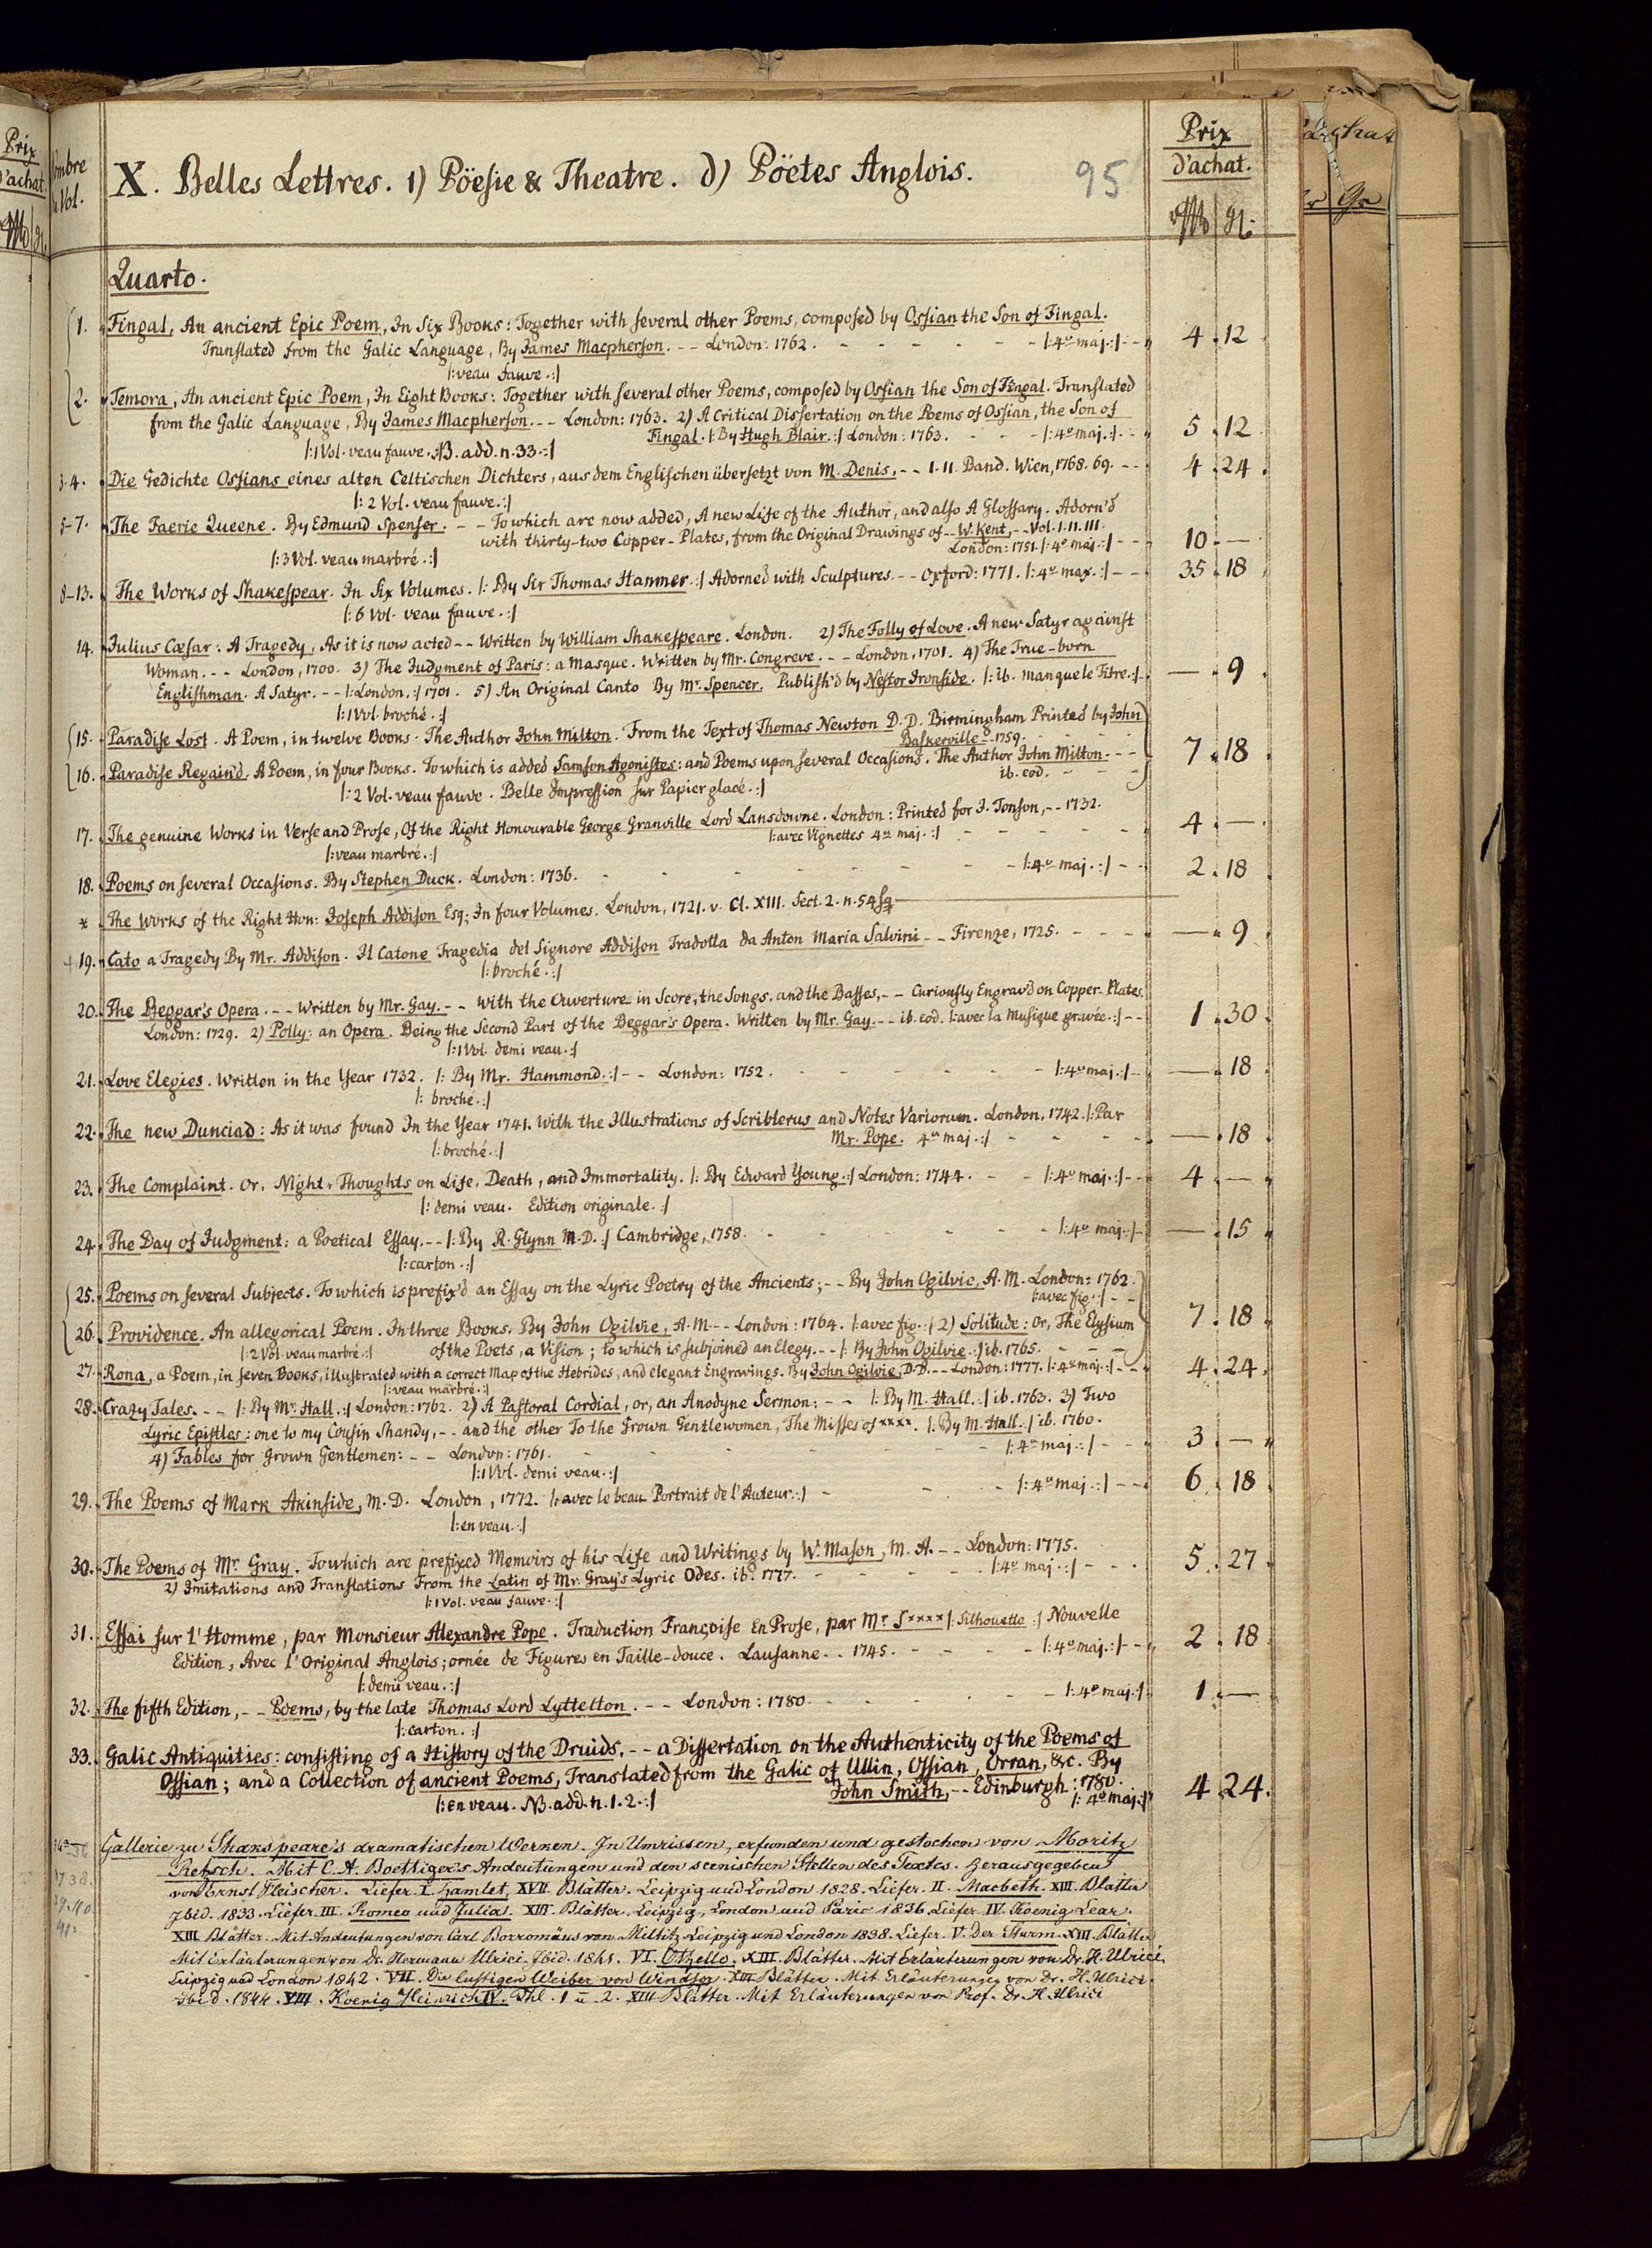 Prix
d'achat.
Nombre
de Vol.
X. Belles Lettres. 1) Pöesie & Theatre. d) Pöetes Anglois.
95
Prix
d'achat.
Quarto.
1. Fingal, An ancient Epic Poem, In Six Books: Together with several other Poems, composed by Ossian the Son of Fingal.
Translated from the Galic Language, By James Macpherson. -- London: 1762. - - - - - - |:4º maj.:| - 4.12
|:veau fauve.:|
2. Temora, An ancient Epic Poem, In Eight Books: Together with several other Poems, composed by Ossian the Son of Fingal. Translated
from the Galic Language, By James Macpherson. -- London: 1763. 2) A Critical Dissertation on the Poems of Ossian, the Son of
Fingal. |:By Hugh Blair.:| London: 1763. - - - |:4º maj.:| - 5.12
|:1 Vol. veau fauve. NB. add. n. 33.:|
3.4. Die Gedichte Ossians eines alten Celtischen Dichters, aus dem Englischen übersetzt von M. Denis. -- I. II. Band. Wien, 1768. 69. -- 4.24.
|: 2 Vol. veau fauve.:|
5-7. The Faerie Queene. By Edmund Spenser. -- To which are now added, A new Life of the Author, and also A Glossary. Adorn'd
with thirty-two Copper-Plates, from the Original Drawings of -- W. Kent, -- Vol. I. II. III.
London: 1751. |:4º maj.:| - - - 10.—
|:3 Vol. veau marbré.:|
8-13. The Works of Shakespear. In Six Volumes. |: By Sir Thomas Hanmer.:| Adorned with Sculptures. -- Oxford: 1771. |:4º max.:| - - 35.18
|: 6 Vol. veau fauve.:|
14. Julius Cæsar: A Tragedy, As it is now acted -- Written by William Shakespeare. London. 2) The Folly of Love. A new Satyr against
Woman. -- London, 1700. 3) The Judgment of Paris: a Masque. Written by Mr. Congreve. -- London, 1701. 4) The True-born
Englishman. A Satyr. -- |:London.:| 1701. 5) An Original Canto By Mr. Spencer. Publish'd by Nestor Ironside. |:ib. manque le Titre.:| —.9.
|:1 Vol. broché.:|
15. Paradise Lost. A Poem, in twelve Books. The Author John Milton. From the Text of Thomas Newton D.D. Birmingham Printed by John
Baskerville - 1759. - - - -
16. Paradise Regain'd. A Poem, in four Books. To which is added Samson Agonistes: and Poems upon several Occasions. The Author John Milton. -- 7.18
ib. eod. - - -
|:2 Vol. veau fauve. Belle Impression sur Papier glacé.:|
17. The genuine Works in Verse and Prose, Of the Right Honourable George Granville Lord Lansdowne. London: Printed for J. Tonson, -- 1732.
|:avec Vignettes 4º maj.:| - - - - - - 4.—.
|:veau marbré.:|
18. Poems on several Occasions. By Stephen Duck. London: 1736. - - - - - - - |:4º maj.:| - - 2.18
* The Works of the Right Hon: Joseph Addison Esq; In four Volumes. London, 1721. v. Cl. XIII. Sect. 2. n. 54 sq
19. Cato a Tragedy By Mr. Addison. Il Catone Tragedia del Signore Addison Tradotta da Anton Maria Salvini -- Firenze, 1725. - - - - —.9.
|:broché.:|
20. The Beggar's Opera. -- Written by Mr. Gay. -- With the Ouverture in Score, the Songs, and the Basses, -- Curiously Engrav'd on Copper-Plates.
London: 1729. 2) Polly: an Opera. Being the Second Part of the Beggar's Opera. Written by Mr. Gay. -- ib. eod. |:avec la Musique gravée.:| - - 1.30.
|:1 Vol. demi veau.:|
21. Love Elegies. Written in the Year 1732. |: By Mr. Hammond.:| -- London: 1752. - - - - - - |:4º maj.:| - —.18
|: broché.:|
22. The new Dunciad: As it was found In the Year 1741. With the Illustrations of Scriblerus and Notes Variorum. London, 1742. |:Par
Mr. Pope. 4º maj.:| - - - - - —.18
|:broché.:|
23. The Complaint. Or, Night-Thoughts on Life, Death, and Immortality. |: By Edward Young.:| London: 1744. - - |:4º maj.:| - - 4.—
|: demi veau. Edition originale.:|
24. The Day of Judgment: a Poetical Essay. -- |:By R. Glynn M.D.:| Cambridge, 1758. - - - - - - |:4º maj.:| - —.15
|:carton.:|
25. Poems on several Subjects. To which is prefix'd an Essay on the Lyric Poetry of the Ancients; -- By John Ogilvie, A.M. London: 1762.
|:avec fig.:| - -
26. Providence. An allegorical Poem. In three Books. By John Ogilvie, A.M. -- London: 1764. |:avec fig.:| 2) Solitude: Or, The Elysium 7.18
|:2 Vol. veau marbré.:| of the Poets, a Vision; to which is subjoined an Elegy. -- |: By John Ogilvie.:| ib. 1765. - - -
27. Rona, a Poem, in seven Books, illustrated with a correct Map of the Hebrides, and elegant Engravings. By John Ogilvie, D.D. -- London: 1777. |:4º maj.:| - - 4.24.
|:veau marbré.:|
28. Crazy Tales. -- |: By Mr. Hall.:| London: 1762. 2) A Pastoral Cordial, or, an Anodyne Sermon: -- |: By M. Hall.:| ib. 1763. 3) Two
Lyric Epistles: one to my Cousin Shandy, -- and the other To the Grown Gentlewomen, The Misses of ****. |:By M. Hall.:| ib. 1760.
4) Fables for Grown Gentlemen: -- London: 1761. - - - - - |:4º maj.:| - - 3.—
|:1 Vol. demi veau.:|
29. The Poems of Mark Akinside, M.D. London, 1772. |:avec le beau Portrait de l'Auteur.:| - - - - |:4º maj.:| - - 6.18
|:en veau.:|
30. The Poems of Mr. Gray. To which are prefixed Memoirs of his Life and Writings by W. Mason, M.A. -- London: 1775.
2) Imitations and Translations From the Latin of Mr. Gray's Lyric Odes. ib. 1777. - - - - |:4º maj.:| - - 5.27.
|:1 Vol. veau fauve.:|
31. Essai sur l'Homme, par Monsieur Alexandre Pope. Traduction Françoise En Prose, par Mr. S**** |:Silhouette:| Nouvelle
Edition, Avec l'Original Anglois; ornée de Figures en Taille-douce. Lausanne. - 1745. - - - - |:4º maj.:| - - 2.18
|:demi veau.:|
32. The fifth Edition, -- Poems, by the late Thomas Lord Lyttelton. -- London: 1780. - - - - - - |:4º maj.:| 1.—
|:carton.:|
33. Galic Antiquities: consisting of a History of the Druids, -- a Dissertation on the Authenticity of the Poems of
Ossian; and a Collection of ancient Poems, Translated from the Galic of Ullin, Ossian, Orran, &c. By
John Smith, -- Edinburgh: 1780.
|: 4º maj.:| 4.24.
|:en veau. NB. add. n. 1. 2.:|
Gallerie zu Shakspeare's dramatischen Werken. In Umrissen, erfunden und gestochen von Moritz
Retsch. Mit C. A. Boettiger's Andeutungen und den scenischen Stellen des Textes. Herausgegeben
von Ernst Fleischer. Liefer. I. Hamlet, XVII Blätter. Leipzig und London 1828. Liefer. II. Macbeth. XIII. Blätter
Ibid. 1833. Liefer. III. Romeo und Julia. XIII. Blätter. Leipzig, London und Paris 1836. Liefer. IV. Koenig Lear.
XIII Blätter. Mit Andeutungen von Carl Borromäus von Miltitz. Leipzig und London 1838. Liefer. V. Der Sturm. XIII. Blätter
Mit Erläuterungen von Dr. Hermann Ulrici. Ibid. 1841. VI. Othello. XIII. Blätter. Mit Erläuterungen von Dr. H. Ulrici.
Leipzig und London 1842. VII. Die lustigen Weiber von Windsor. XIII Blätter. Mit Erläuterungen von Dr. H. Ulrici.
Ibid. 1844. VIII. Koenig Heinrich IV. Thl. 1 u. 2. XIII Blätter. Mit Erläuterungen von Prof. Dr. H. Ulrici